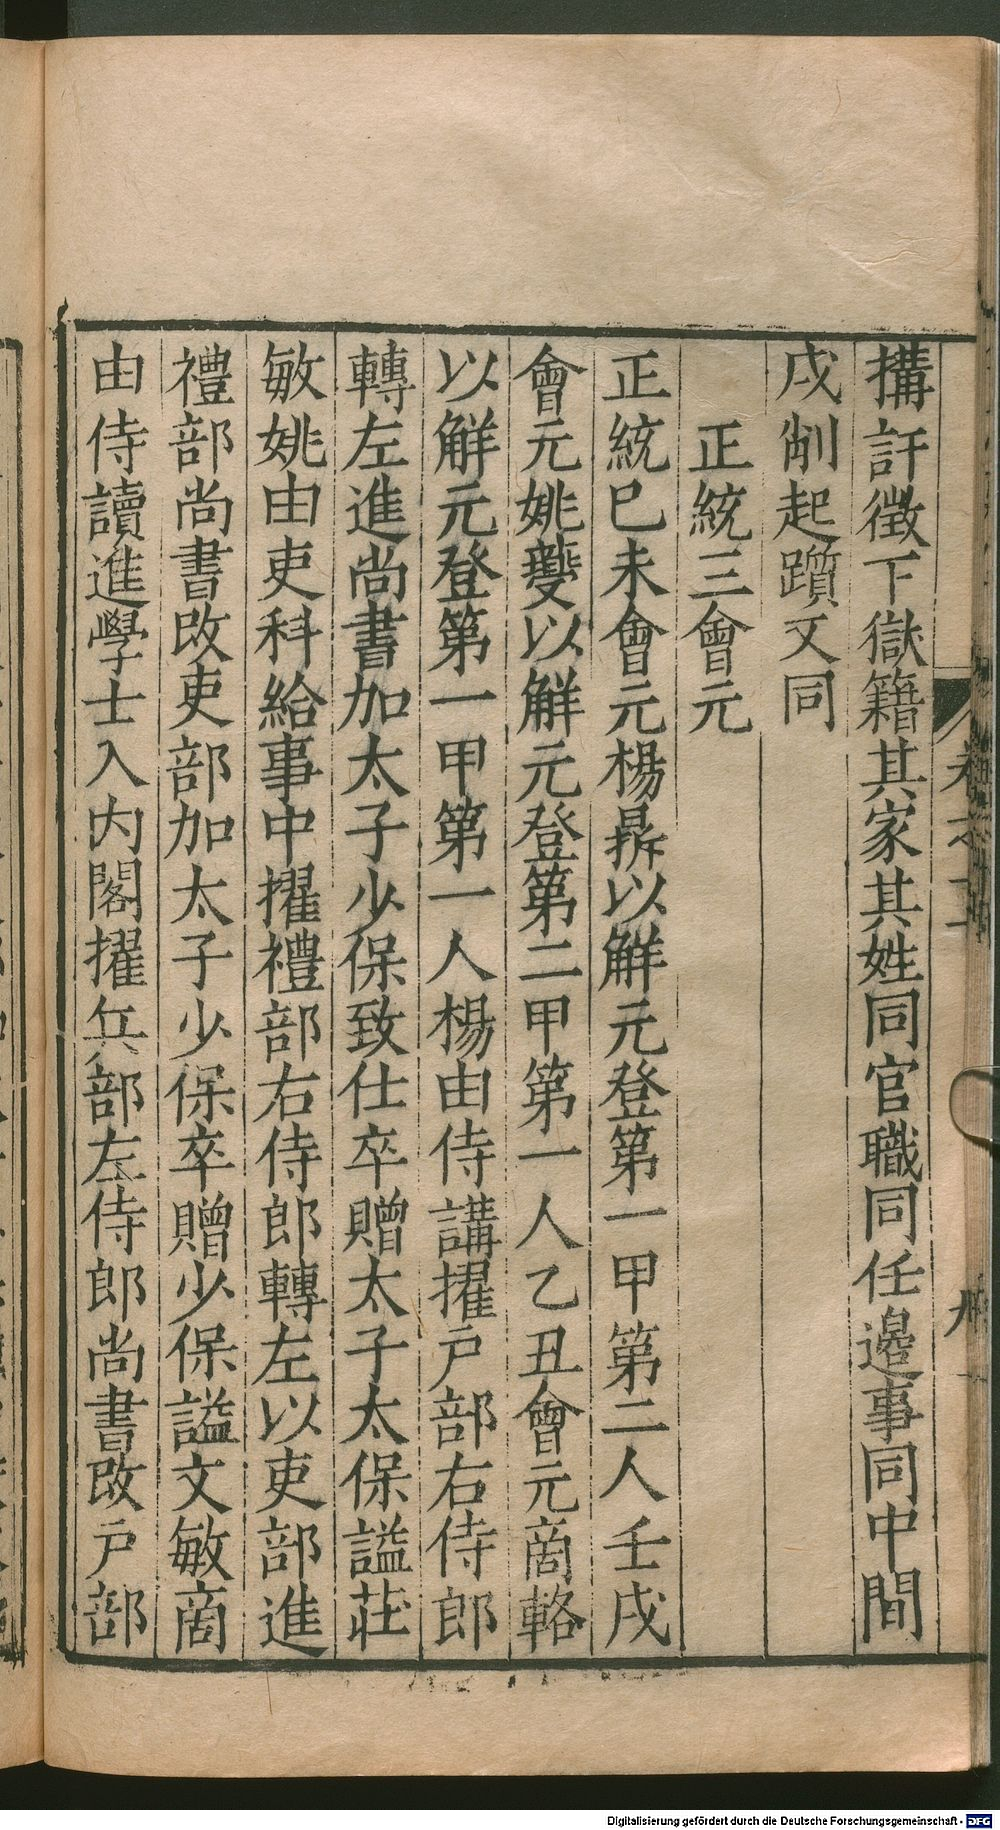 搆訐徴下獄籍其家其姓同官職同任邉事同中間
戍削起躓又同
正統三會元
正統巳未會元楊鼎以觧元登第一甲第二人壬戌
會元姚夔以觧元登第二甲第一人乙丑會元商輅
以觧元登第一甲第一人楊由侍講擢户部右侍郎
轉左進尚書加太子少保致仕卒贈太子太保謚莊
敏姚由吏科給事中擢禮部右侍郎轉左以吏部進
禮部尚書改吏部加太子少保卒贈少保謚文敏商
由侍讀進學士入内閣擢兵部左侍郎尚書改户部
九
Digitalisierung gefördert durch die Deutsche Forschungsgemeinschaft - DFG